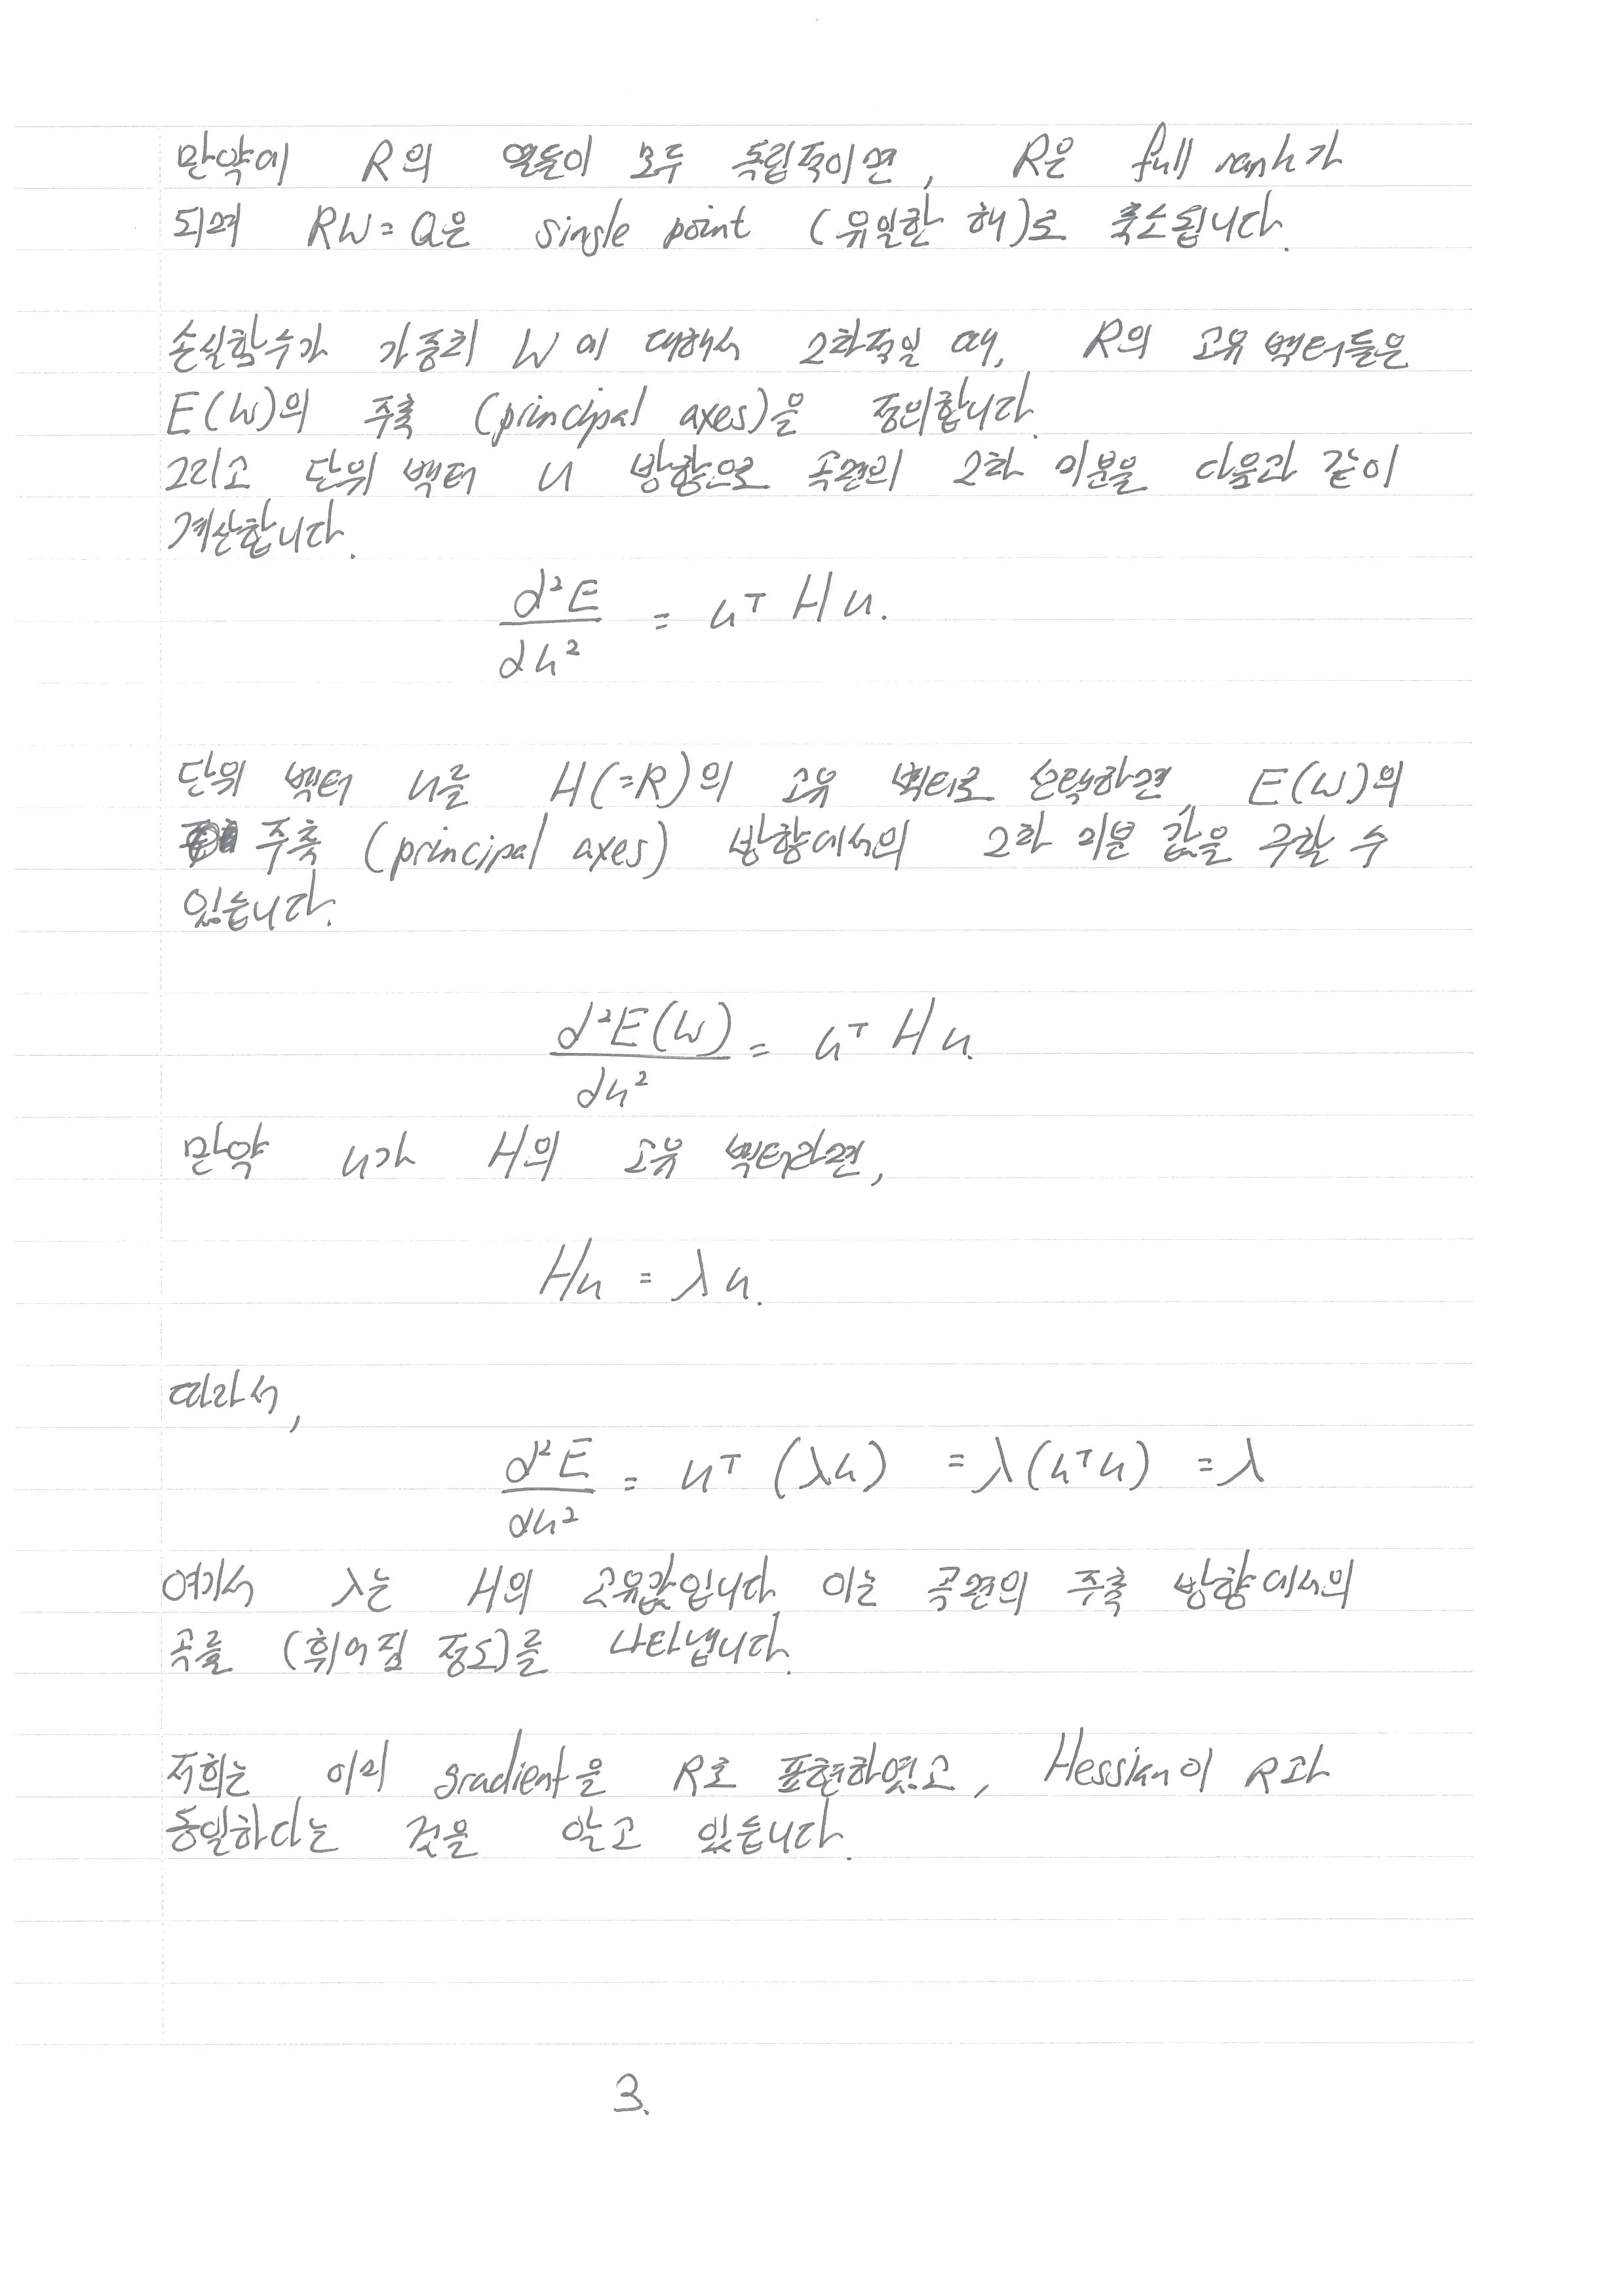 만약에 R의 열들이 모두 독립적이면, R은 full rank가
되며 RW=Q은 single point (유일한 해)로 축소됩니다.
손실함수가 가중치 W에 대해서 2차적일 때, R의 고유 벡터들은
E(W)의 주축 (principal axes)을 정의합니다.
그리고 단위 벡터 u 방향으로 곡면의 2차 미분을 다음과 같이
계산합니다.
d²E/du² = uᵀHu.
단위 벡터 u를 H(=R)의 고유 벡터로 선택하면, E(W)의
주축 (principal axes) 방향에서의 2차 미분 값을 구할 수
있습니다.
d²E(W)/du² = uᵀHu.
만약 u가 H의 고유 벡터라면,
Hu = λu.
따라서,
d²E/du² = uᵀ(λu) = λ(uᵀu) = λ
여기서 λ는 H의 고유값입니다 이는 곡면의 주축 방향에서의
곡률 (휘어짐 정도)를 나타냅니다.
저희는 이의 gradient을 R로 표현하였고, Hessian이 R과
동일하다는 것을 알고 있습니다.
3.